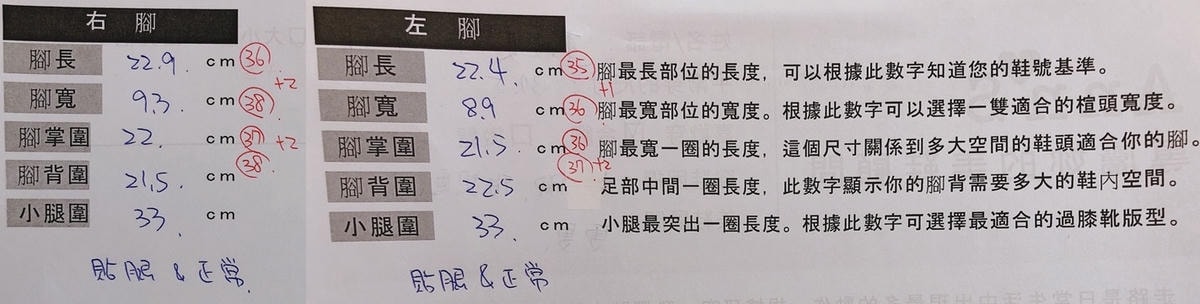 右 腳
腳長 22.9. cm 36
+2
腳寬 9.3 cm 38
腳掌圍 22. cm 37 +2
38
腳背圍 21.5. cm
小腿圍 33. cm
貼腿 & 正常.
左 腳
腳長 22.4. cm 35 腳最長部位的長度，可以根據此數字知道您的鞋號基準。
+1
腳寬 8.9 cm 36 腳最寬部位的寬度。根據此數字可以選擇一雙適合的楦頭寬度。
腳掌圍 21.5 cm 36 腳最寬一圈的長度，這個尺寸關係到多大空間的鞋頭適合你的腳。
37 +2
腳背圍 22.5 cm 足部中間一圈長度，此數字顯示你的腳背需要多大的鞋內空間。
小腿圍 33. cm 小腿最突出一圈長度。根據此數字可選擇最適合的過膝靴版型。
貼腿 & 正常